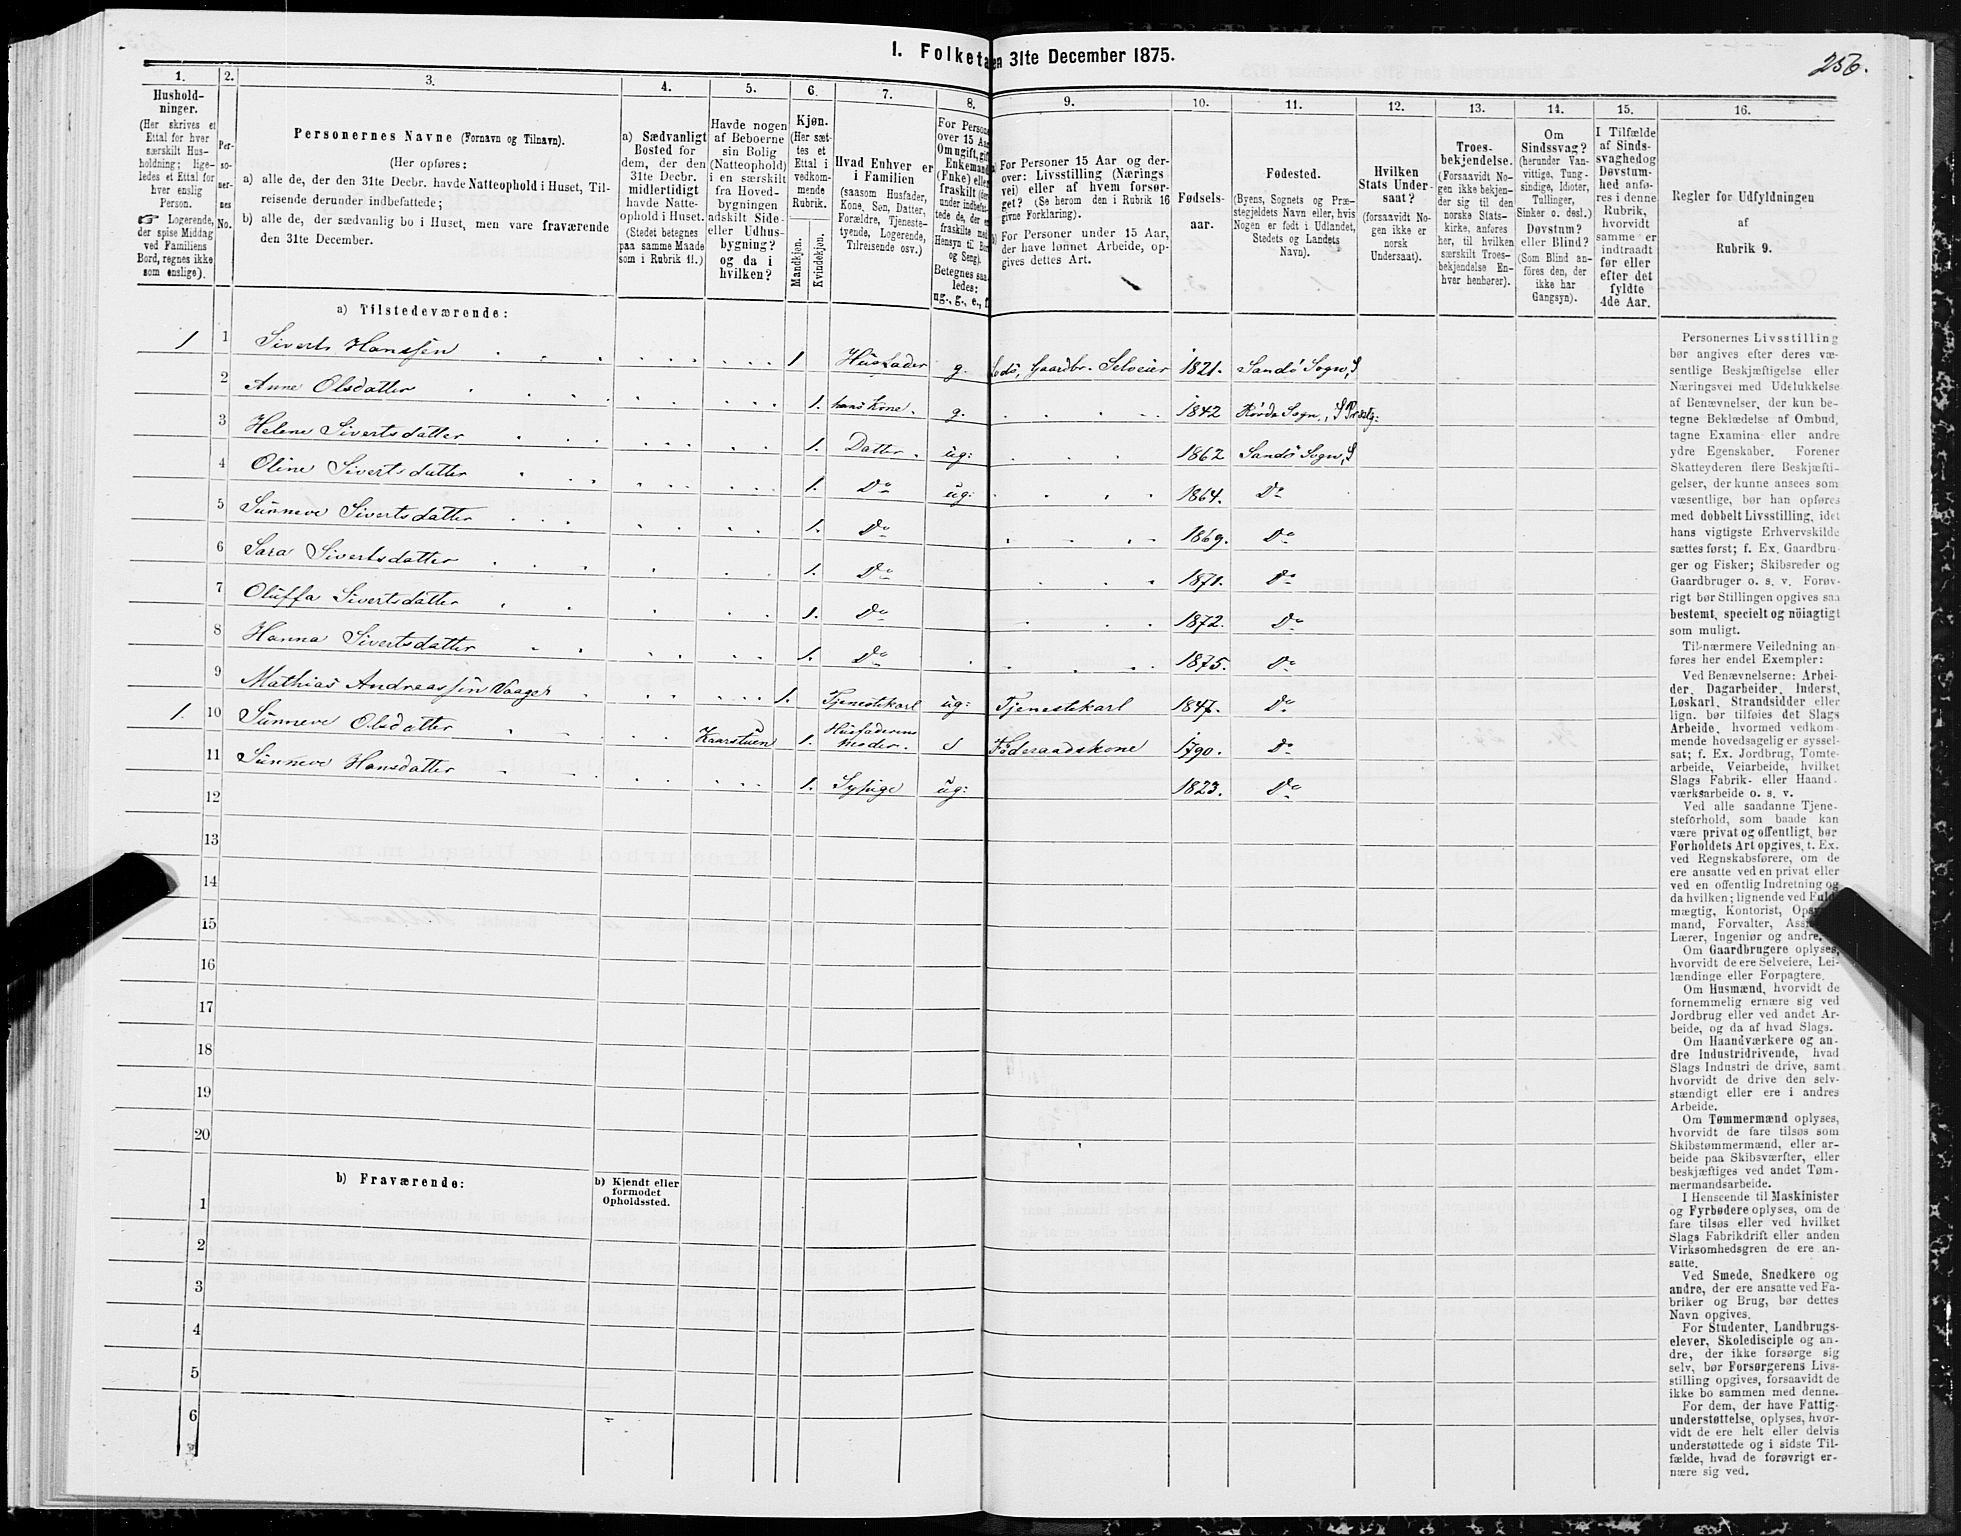 256.
I. Folketa
en 31te December 1875.
1. 2. 3. 4. 5. 6. 7. 8. 9. 10. 11. 12. 13. 14. 15. 16.
Hushold-
ninger.
(Her skrives et
Ettal for hver
særskilt Hus-
holdning; lige-
ledes et Ettal for
hver enslig
Person.
☞ Logerende,
der spise Middag
ved Familiens
Bord, regnes ikke
som enslige).
Per-
so-
ner-
nes
No.
Personernes Navne (Fornavn og Tilnavn).
(Her opføres:
a) alle de, der den 31te Decbr. havde Natteophold i Huset, Til-
reisende derunder indbefattede;
b) alle de, der sædvanlig bo i Huset, men vare fraværende
den 31te December.
a) Sædvanligt
Bosted for
dem, der den
31te Decbr.
midlertidigt
havde Natte-
ophold i Huset.
(Stedet betegnes
paa samme Maade
som i Rubrik 11.)
Havde nogen
af Beboerne
sin Bolig
(Natteophold)
i en særskilt
fra Hoved-
bygningen
adskilt Side-
eller Udhus-
bygning?
og da i
hvilken?
Kjøn.
(Her sæt-
tes et
Ettal i
vedkom-
mende
Rubrik.
Mandkjøn.
Kvindekjøn.
Hvad Enhver er
i Familien
(saasom Husfader,
Kone, Søn, Datter,
Forældre, Tjeneste-
tyende, Logerende,
Tilreisende osv.)
For Persone
over 15 Aar
Om ugift, gift
Enkemand
(Enke) eller
fraskilt (der
under indbefat-
tede de, der er
fraskilte med
Hensyn til Bor
og Seng).
Betegnes saa
ledes:
ug., g., e., f.
For Personer 15 Aar og der-
over: Livsstilling (Nærings
vei) eller af hvem forsør-
get? (Se herom den i Rubrik 16
givne Forklaring).
For Personer under 15 Aar,
der have lønnet Arbeide, op-
gives dettes Art.
Fødsels-
aar.
Fødested.
(Byens, Sognets og Præ-
stegjeldets Navn eller, hvis
Nogen er født i Udlandet,
Stedets og Landets
Navn).
Hvilken
Stats Under-
saat?
(forsaavidt No-
gen ikke er
norsk
Undersaat).
Troes-
bekjendelse.
(Forsaavidt No-
gen ikke bekjen-
der sig til den
norske Stats-
kirke, anføres
her, til hvilken
særskilt Troes-
bekjendelse En-
hver henhører).
Om
Sindssvag?
(herunder Van-
vittige, Tung-
sindige, Idioter,
Tullinger,
Sinker o. desl.)
Døvstum?
eller Blind?
(Som Blind an-
føres den, der
ikke har
Gangsyn).
I Tilfælde
af Sinds-
svaghed og
Døvstum-
hed anfø-
res i denne
Rubrik,
hvorvidt
samme er
indtraadt
før eller
efter det
fyldte
4de Aar.
Regler for Udfyldningen
af
Rubrik 9.
a) Tilstedeværende:
1 1 Siverts Hanssen 1 Husfader g. Gaardbr. Selveier 1821. Sandø Sogn, S
2 Anne Olsdatter 1. hans Kone. g. 1842 Sogn, S Præstg:
3 Helene Sivertsdatter 1. Datter. ug: 1862 Sandø Sogn, S
4 Oline Sivertsdatter 1. Do ug: 1864. Do
5 Sünneve Sivertsdatter 1. Do 1869. Do
6 Sara Sivertsdatter 1. Do 1871. Do
7 Oluffa Sivertsdatter 1. Do 1872. Do
8 Hanna Sivertsdatter 1. Do 1875. Do
9 Mathias Andreassen Vaager 1. Tjenestekarl ug: Tjenestekarl 1847. Do
1. 10 Sünneve Olsdatter Kaarstuen 1. Husfaderens Moder. Føderaadskone 1790. Do
11 Sünneve Hansdatter 1. Sypige ug: 1823. Do
12
13
14
15
16
17
18
19
20
b) Fraværende:
b) Kjendt eller
formodet
Opholdssted.
1
2
3
4
5
6
Personernes Livsstilling
bør angives efter deres væ-
sentlige Beskjæftigelse eller
Næringsvei med Udelukkelse
af Benævnelser, der kun be-
tegne Beklædelse af Ombud,
tagne Examina eller andre
ydre Egenskaber. Forener
Skatteyderen flere Beskjæfti-
gelser, der kunne ansees som
væsentlige, bør han opføres
med dobbelt Livsstilling, idet
hans vigtigste Erhvervskilde
sættes først; f. Ex. Gaardbru-
ger og Fisker; Skibsreder og
Gaardbruger o. s. v. Forøv-
rigt bør Stillingen opgives saa
bestemt, specielt og nöiagtigt
som muligt.
Til nærmere Veiledning an-
føres her endel Exempler:
Ved Benævnelserne: Arbei-
der, Dagarbeider, Inderst,
Løskarl, Strandsidder eller
lign. bør tilføies det Slags
Arbeide, hvormed vedkom-
mende hovedsagelig er syssel-
sat; f. Ex. Jordbrug, Tomte-
arbeide, Veiarbeide, hvilket
Slags Fabrik- eller Haand-
værksarbeide o. s. v.
Ved alle saadanne Tjene-
steforhold, som baade kan
være privat og offentligt, bør
Forholdets Art opgives, t. Ex.
ved Regnskabsførere, om de
ere ansatte ved en privat eller
ved en offentlig Indretning og
da hvilken; lignende ved Fuld-
mægtig, Kontorist, Opsyns-
mand, Forvalter, Assi
Lærer, Ingeniør og andre.
Om Gaardbrugere oplyses,
hvorvidt de ere Selveiere, Lei-
lændinge eller Forpagtere.
Om Husmænd, hvorvidt de
fornemmelig ernære sig ved
Jordbrug eller ved andet Ar-
beide, og da af hvad Slags.
Om Haandværkere og an-
dre Industridrivende, hvad
Slags Industri de drive, samt
hvorvidt de drive den selv-
stændigt eller ere i andres
Arbeide.
Om Tømmermænd oplyses,
hvorvidt de fare tilsøs som
Skibstømmermænd, eller ar-
beide paa Skibsværfter, eller
beskjæftiges ved andet Tøm-
mermandsarbeide.
I Henseende til Maskinister
og Fyrbødere oplyses, om de
fare tilsøs eller ved hvilket
Slags Fabrikdrift eller anden
Virksomhedsgren de ere an-
satte.
Ved Smede, Snedkere og
andre, der ere ansatte ved Fa-
briker og Brug, bør dettes
Navn opgives.
For Studenter, Landbrugs-
elever, Skoledisciple og an-
dre, der ikke forsørge sig
selv, bør Forsørgerens Livs-
stilling opgives, forsaavidt de
ikke bo sammen med denne.
For dem, der have Fattig-
understøttelse, oplyses, hvor-
vidt de ere helt eller delvis
understøttede og i sidste Til-
fælde, hvad de forøvrigt er-
nære sig ved.